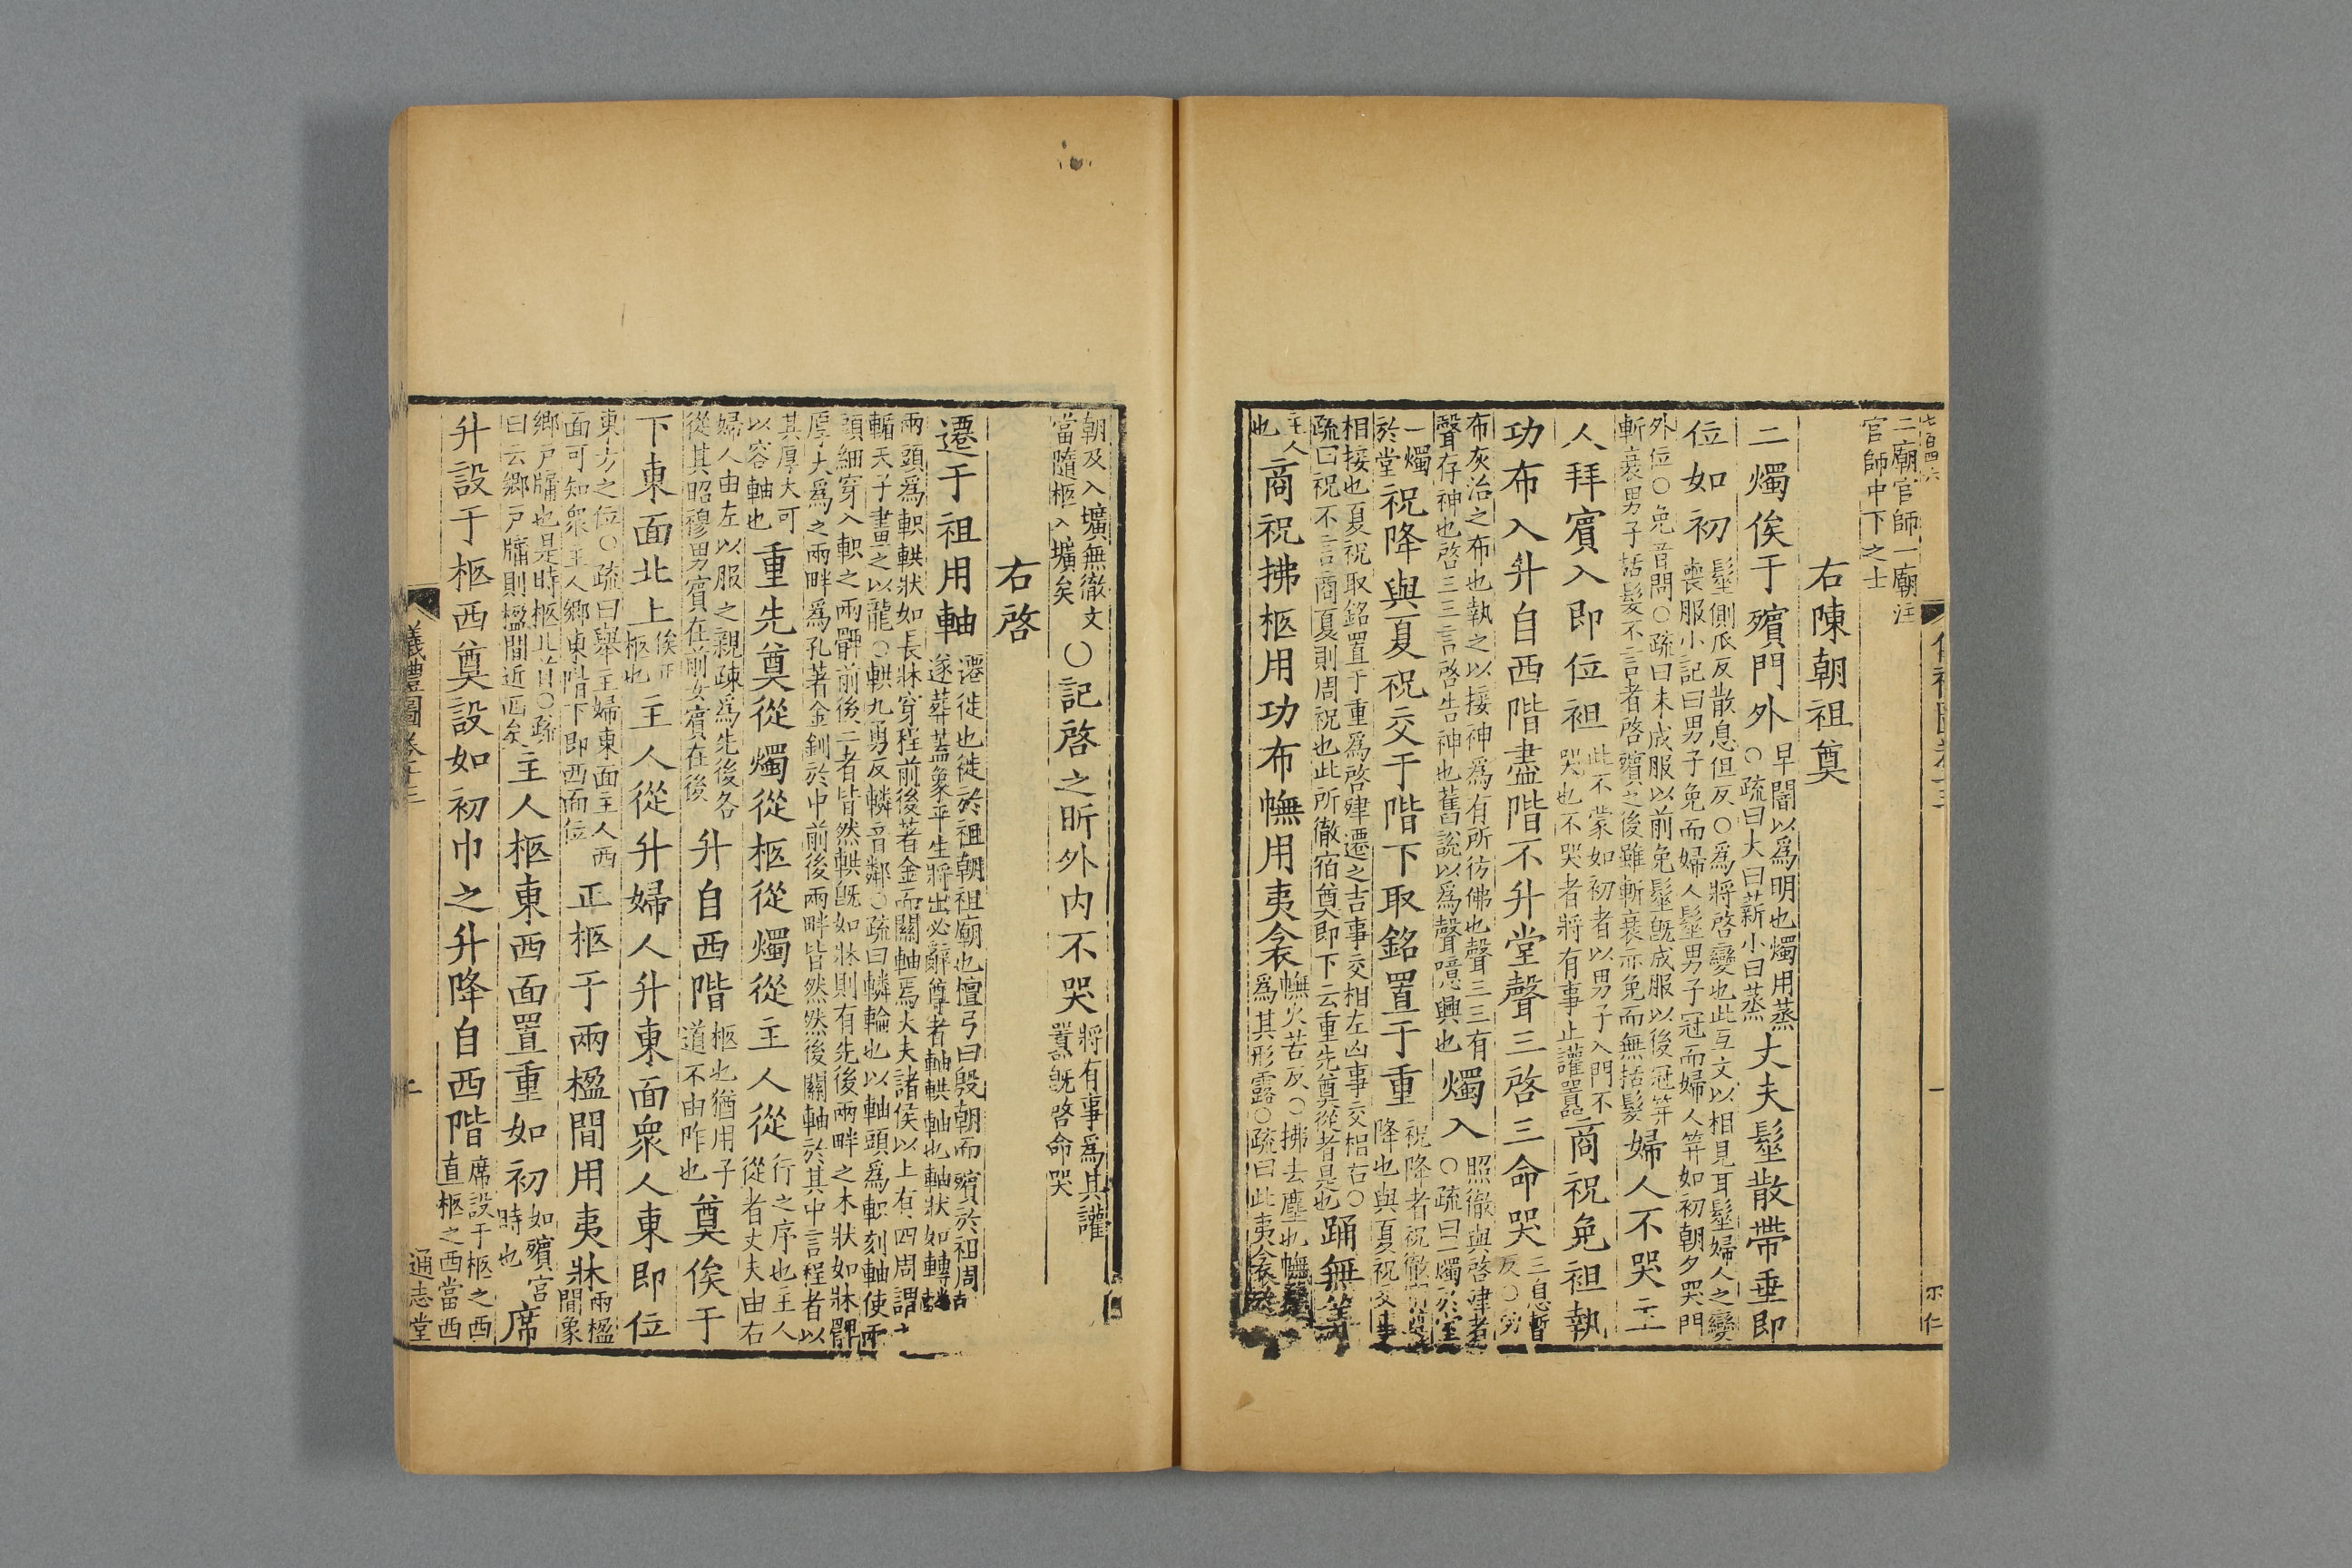 二廟官師一廟注
官師中下之士
右陳朝祖奠
二燭俟于殯門外早闇以爲明也燭用蒸
○疏曰大曰薪小曰蒸丈夫髽散帶垂即
位如初髽側瓜反散息但反○爲將啓變也此互文以相見耳髽婦人之變
喪服小記曰男子免而婦人髽男子冠而婦人笄如初朝夕哭門
外位○免音問○疏曰未成服以前免髽旣成服以後冠笄
斬衰男子括髮不言者啓殯之後雖斬衰亦免而無括髮婦人不哭主
人拜賓入即位袒此不蒙如初者以男子入門不
哭也不哭者將有事止讙嚻商祝免袒執
功布入升自西階盡階不升堂聲三啓三命哭三息暫
反○功
布灰治之布也執之以接神爲有所彷佛也聲三三有
聲存神也啓三三言啓告神也舊說以爲聲噫興也燭入照徹與啓肂者
○疏曰一燭於室
一燭
於堂祝降與夏祝交于階下取銘置于重祝降者祝徹
降也與夏祝交
相接也夏祝取銘置于重爲啓肂遷之吉事交相左凶事交相右○
疏曰祝不言商夏則周祝也此所徹宿奠即下云重先奠從者是也踊無筭
主人
也商祝拂柩用功布幠用夷衾幠火吳反○拂去塵也幠
爲其形露○疏曰此夷衾
朝及入壙無徹文
當隨柩入壙矣○記啓之昕外内不哭將有事爲其讙
嚻旣啓命哭
右啓
遷于祖用軸遷徙也徙於祖朝祖廟也檀弓曰殷朝而殯於祖周
遂葬蓋象平生將出必辭尊者軸輁軸也軸狀如轉轔
兩頭爲軹輁狀如長牀穿桯前後著金而關軸焉大夫諸侯以上有四周謂
輴天子畫之以龍○輁九勇反轔音鄰○疏曰轔輪也以軸頭爲軹刻軸使兩
頭細穿入軹之兩髀前後二者皆然輁旣如牀則有先後兩畔之木狀如牀髀
厚大爲之兩畔爲孔著金釧於中前後兩畔皆然然後關軸於其中言桯者以
其厚大可
以容軸也重先奠從燭從柩從燭從主人從行之序也主人
從者丈夫由右
婦人由左以服之親疎爲先後各
從其昭穆男賓在前女賓在後升自西階柩也猶用子
道不由阼也奠俟于
下東面北上俟正
柩也主人從升婦人升東面衆人東即位
東方之位○疏曰舉主婦東面主人西
面可知衆主人鄉東階下即西面位正柩于兩楹間用夷牀兩楹
間象
鄉戶牖也是時柩北首○疏
曰云鄉戶牖則楹間近西矣主人柩東西面置重如初如殯宮
時也席
升設于柩西奠設如初巾之升降自西階席設于柩之西
直柩之西當西
儀禮圖
通志堂